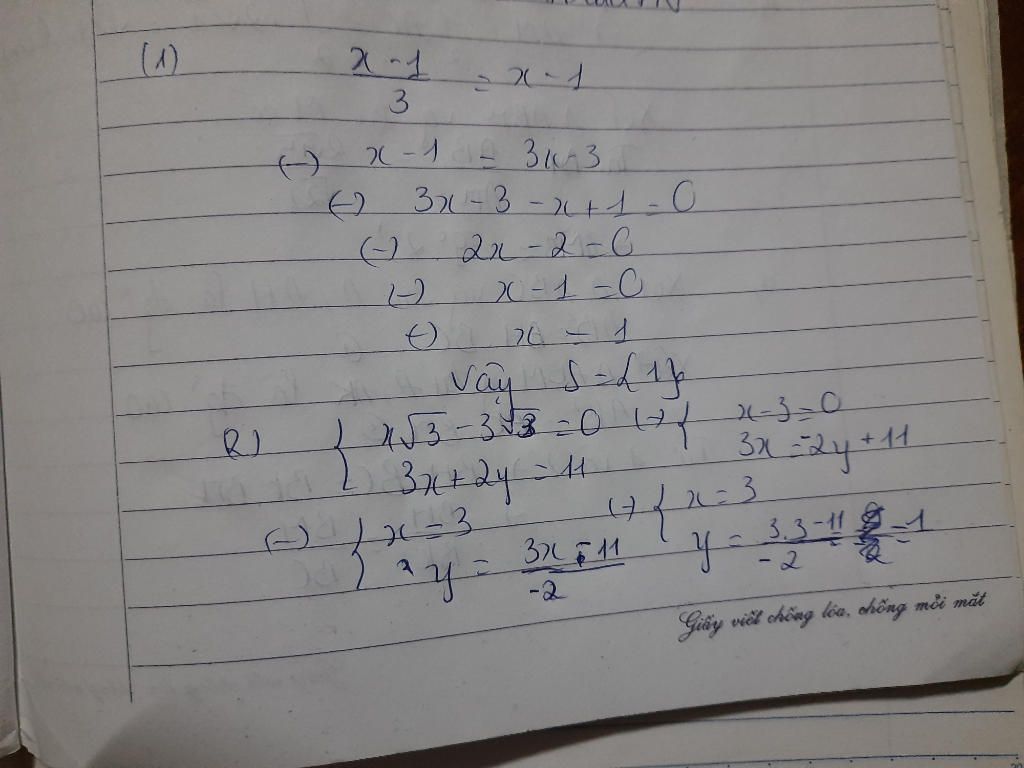 (1) x - 1 / 3 = x - 1
(-) x - 1 = 3x - 3
(-) 3x - 3 - x + 1 = 0
(-) 2x - 2 = 0
(-) x - 1 = 0
(-) x = 1
Vậy S = {1}
2) { x√3 - 3√3 = 0 (-) { x - 3 = 0
3x + 2y = 11 3x = -2y + 11
(-) { x = 3 (-) { x = 3
y = 3x - 11 / -2 y = 3.3 - 11 / -2 = 1
Giấy viết chống lóa, chống mỏi mắt